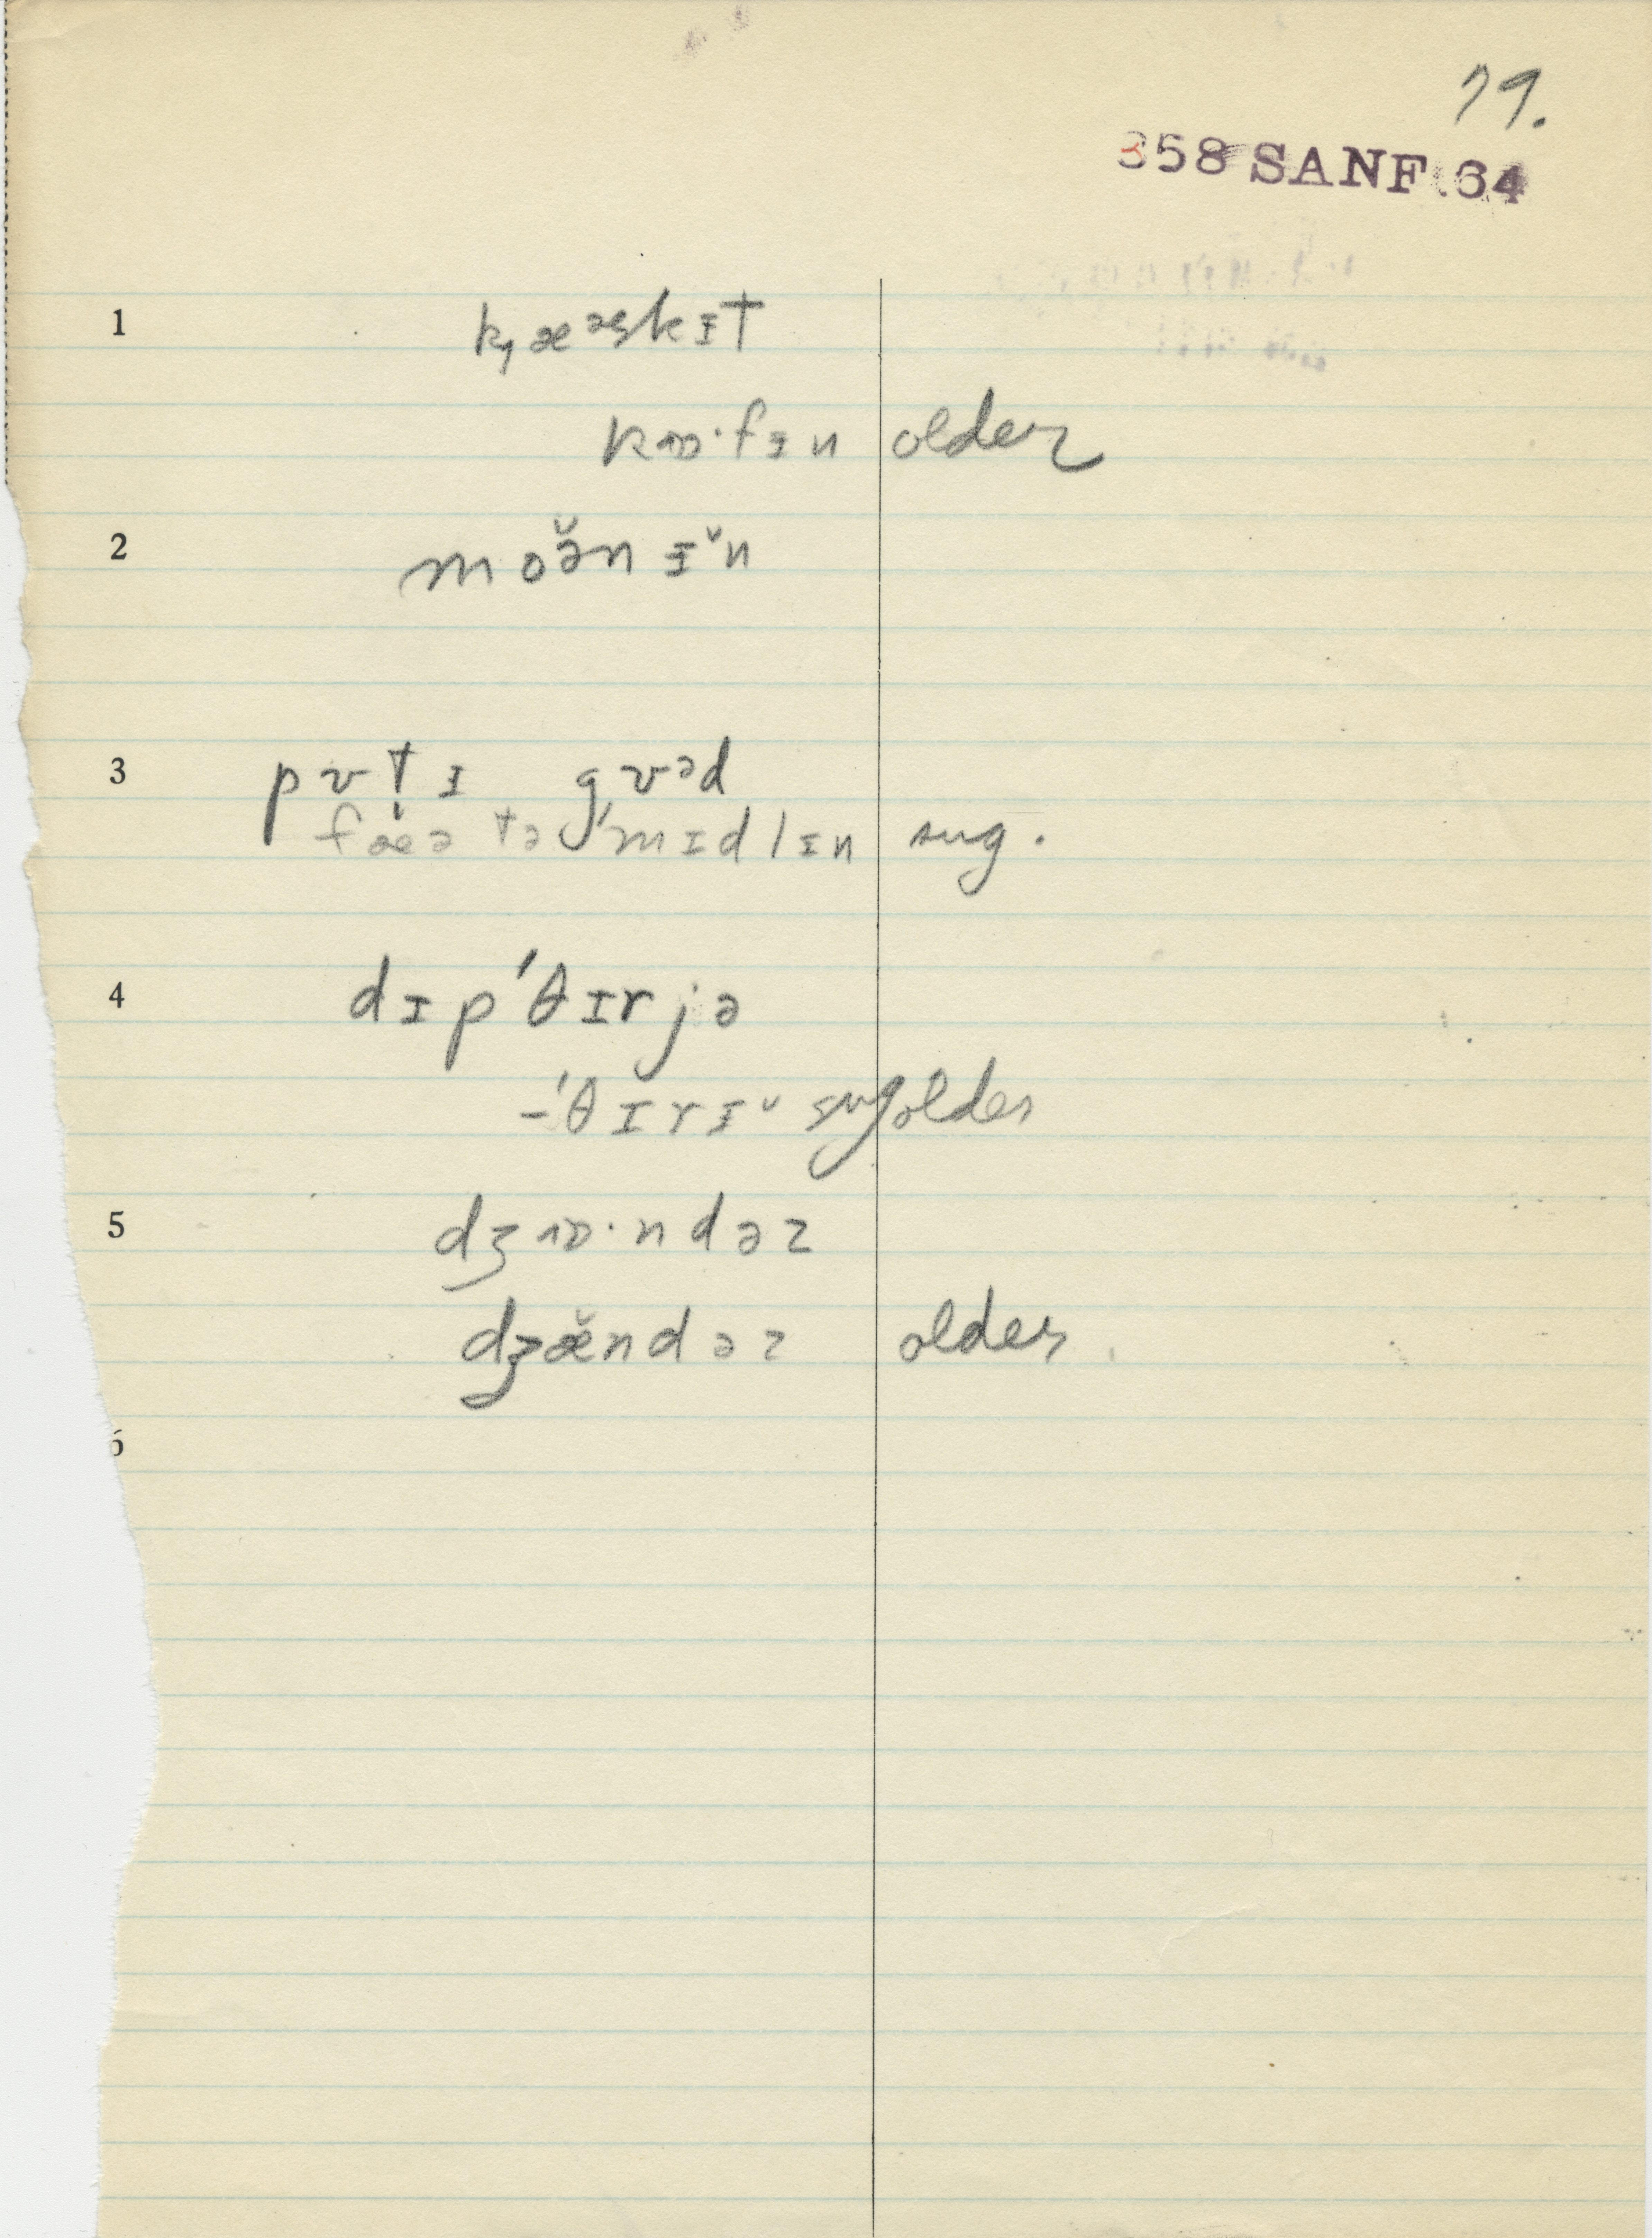 79.
358 SANF 64
1 k̡æᵊskɨt
kɒ·fɨn older
2 moə̆nɨ˘n
3 pʊt̬ɨ gʊᵊd
fæə tə ˈmɪdlɪn sug.
4 dɪpˈθɪrjə
-ˈθɪrɨ˘ sug older
5 dʒɒ·ndəz
dʒæ̆ndəz older
6